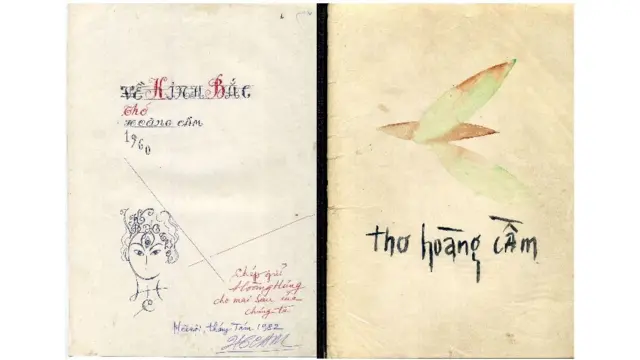 VỀ KINH BẮC
Thơ
HOÀNG CẦM
1960
Chép gửi
Hoàng Hưng
cho mai sau của
chúng ta
Hà Nội, tháng Tám 1982
thơ hoàng CẦM